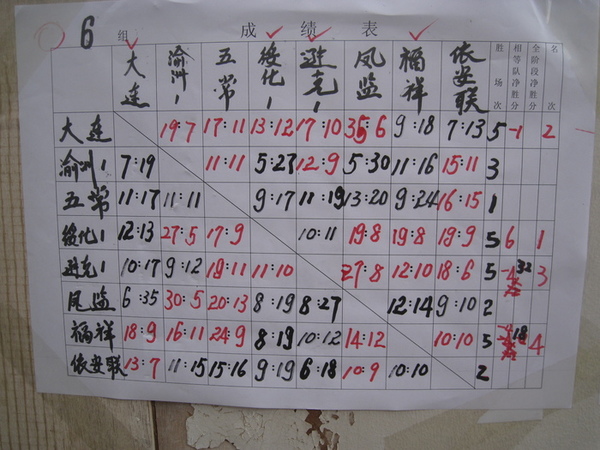 6 组 成绩表
大连 渝洲1 五常 绥化1 逊克1 凤监 福祥 依安联 胜场次 相等队净胜分 全阶段净胜分 名次
大连 19:7 17:11 13:12 17:10 35:6 9:18 7:13 5 -1 2
渝洲1 7:19 11:11 5:27 12:9 5:30 11:16 15:11 3
五常 11:17 11:11 9:17 11:19 13:20 9:24 16:15 1
绥化1 12:13 27:5 17:9 10:11 19:8 19:8 19:9 5 6 1
逊克1 10:17 9:12 19:11 11:10 27:8 12:10 18:6 5 -4 32 3
凤监 6:35 30:5 20:13 8:19 8:27 12:14 9:10 2
福祥 18:9 16:11 24:9 8:19 10:12 14:12 10:10 5 18 4
依安联 13:7 11:15 15:16 9:19 6:18 10:9 10:10 2